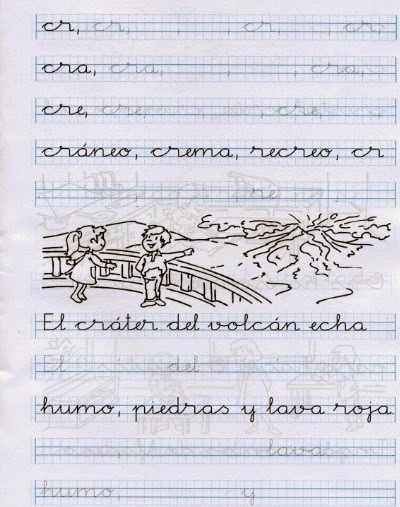 cr, cr, , cr, , cr,
cra, cra, , , cra,
cre, cre, , cre,
cráneo, crema, recreo, cr
, , re , ,
El cráter del volcán echa
El del
humo, piedras y lava roja
, lava
humo, y